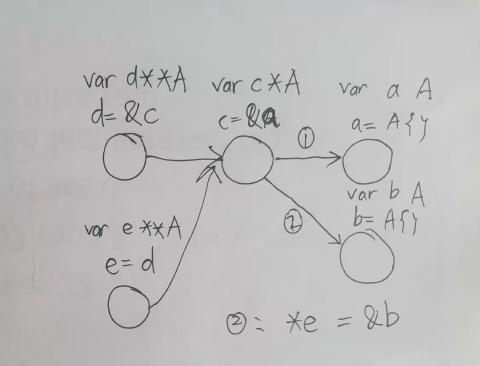 var d**A
d= &c
var c*A
c=&a
①
var a A
a= A{}
②
var b A
b= A{}
var e**A
e= d
②: *e = &b